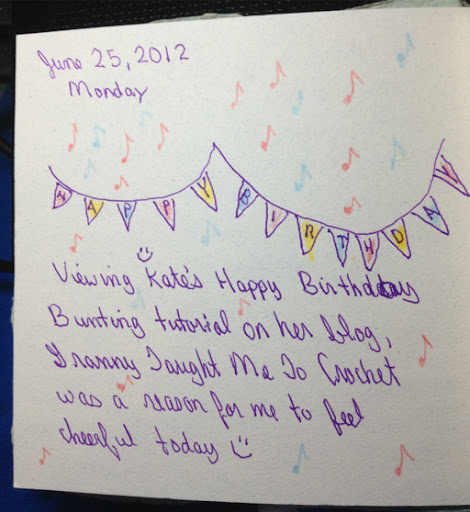 June 25, 2012
Monday
HAPPY BIRTHDAY
Viewing Kate's Happy Birthday
Bunting tutorial on her blog,
Granny Taught Me To Crochet
was a reason for me to feel
cheerful today